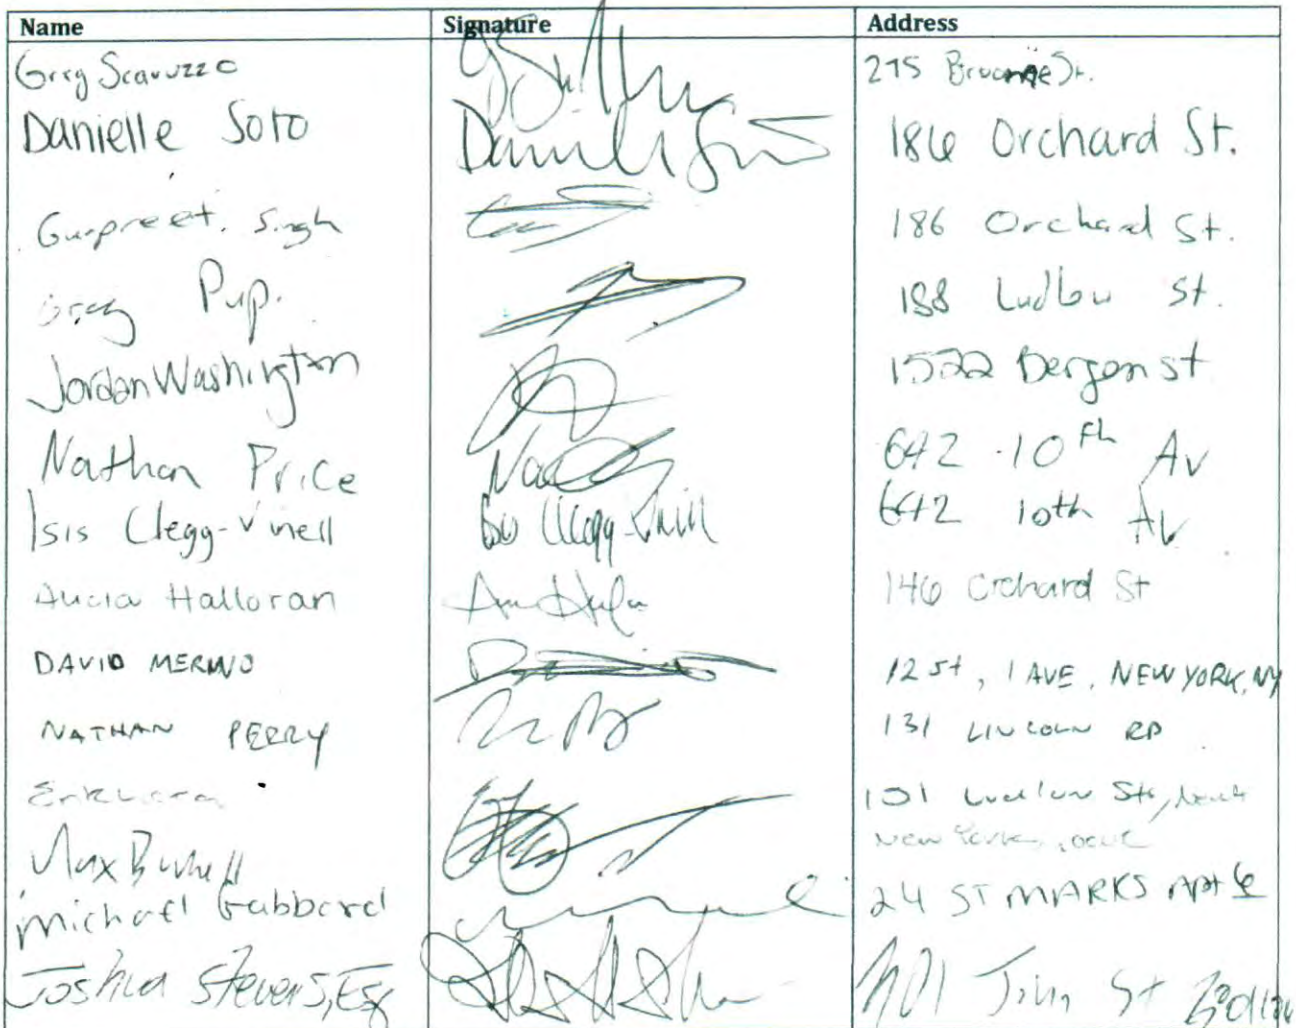 Name Signature Address
Greg Scavuzzo 275 Broome St.
Danielle Soto 186 Orchard St.
Gurpreet. Singh 186 Orchard St.
Greg Pup. 188 Ludlow St.
Jordan Washington 1522 Bergen st
Nathan Price 642 10th Av
Isis Clegg-Vinell 642 10th Av
Alicia Halloran 146 Orchard St
DAVID MERINO 12 st, 1 AVE, NEW YORK, NY
NATHAN PERRY 131 LINCOLN RD
101 Ludlow St
New York
Max
Michael Gabbard 24 ST MARKS Apt 6
Joshua Stevens, Esq St